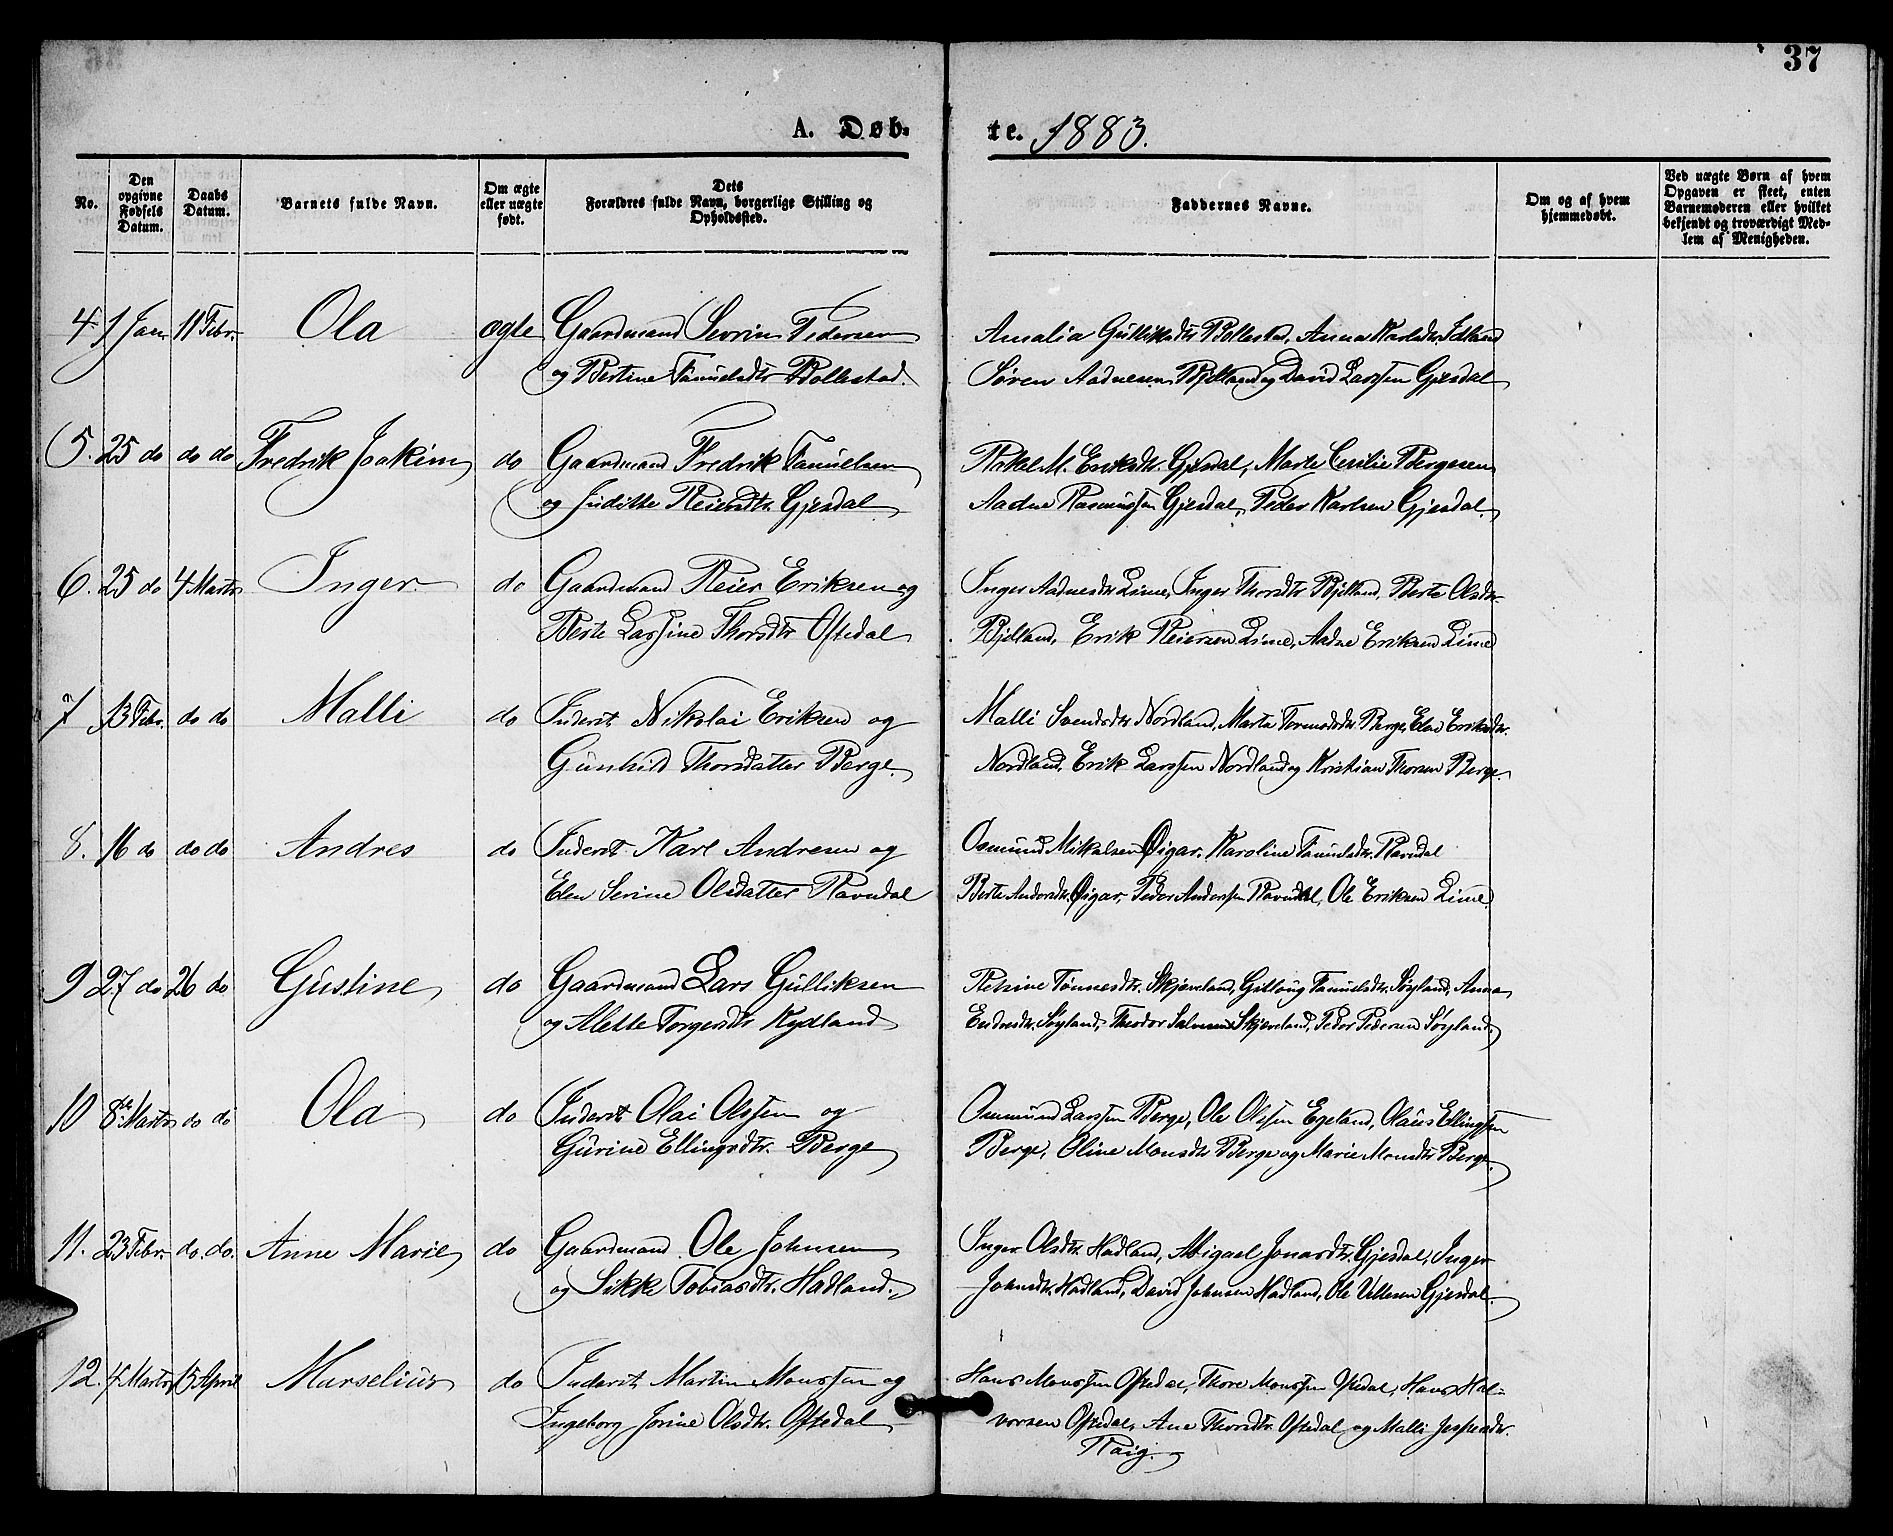 37
A. Døb-
te. 1883.
No.
Den opgivne Fødsels Datum.
Daabs Datum.
Barnets fulde Navn.
Om ægte eller uægte født.
Dets Forældres fulde Navn, borgerlige Stilling og Opholdssted.
Faddernes Navne.
Om og af hvem hjemmedøbt.
Ved uægte Børn af hvem Opgaven er skeet, enten Barnemoderen eller hvilket bekjendt og troværdigt Medlem af Menigheden.
4 1 Jan. 11 Febr. Ola ægte Gaardmand Sevrin Pedersen
og Bertine Tønnesdtr Bollestad.
Amalia Gulliksdtr Bollestad, Anna Karlsdtr Edland
Søren Aadnesen Bjelland og David Larssen Gjesdal
5. 25 do do do Fredrik Joakim do Gaardmand Fredrik Samuelsen
og Juditte Reiersdtr. Gjesdal
Rakel M. Eriksdtr. Gjesdal, Marte Cesilie Bergesen
Aadne Rasmussen Gjesdal, Peder Karlsen Gjesdal.
6. 25 do 4 Marts Inger do Gaardmand Reier Eriksen og
Berte Lassine Thorsdtr Oftedal
Inger Aadnesdtr Lime, Inger Thorsdtr Bjelland, Berte Olsdtr.
Bjelland, Erik Reiersen Lime, Aadne Eriksen Lime
7 13 Febr. do do Malli do Inderst Nikolai Eriksen og
Gunhild Thorsdatter Berge.
Malli Svendsdtr Nordland, Marta Tormodsdtr Berge, Elen Eriksdtr.
Nordland, Erik Larssen Nordland og Kristian Thorsen Berge.
8. 16 do do do Andres do Inderst Karl Andresen og
Elen Serine Olsdatter Ravndal
Osmund Mikalsen Øigar. Karoline Samuelsdtr. Ravndal
Berte Andersdtr. Øigar, Peder Anderssen Ravndal, Ole Eriksen Lime.
9 27 do 26 do Gustine do Gaardmand Lars Gulliksen
og Alette Torgersdtr Kydland
Retsine Tønnesdtr. Skjæveland, Gitlaug Samuelsdtr. Søyland, Anna
Endresdtr. Søyland, Theodor Salvesen Skjæveland, Peder Pedersen Søyland.
10 8de Marts do do Ola do Inderst Olai Olssen og
Gurine Ellingsdtr. Berge
Ommund Larssen Berge, Ole Olssen Egeland, Olaus Ellingsen
Berge, Oline Monsdtr Berge og Marie Monsdtr Berge.
11. 23 Febr. do. do. Anne Marie do Gaardmand Ole Johnsen
og Sikke Tobiasdtr. Hadland.
Inger Olsdtr. Hadland, Abigael Jonasdtr. Gjesdal, Inger
Johnsdtr. Hadland, David Johnsen Hadland, Ole Vellesen Gjesdal.
12. 4 Marts 15 April Marselius do Inderst Martin Monssen og
Ingeborg Jorine Olsdtr. Oftedal
Hans Monssen Oftedal, Thore Monssen Oftedal, Hans Hal-
vorsen Oftedal, Ane Thorsdtr. Oftedal og Malli Jespersdtr.
Raig.